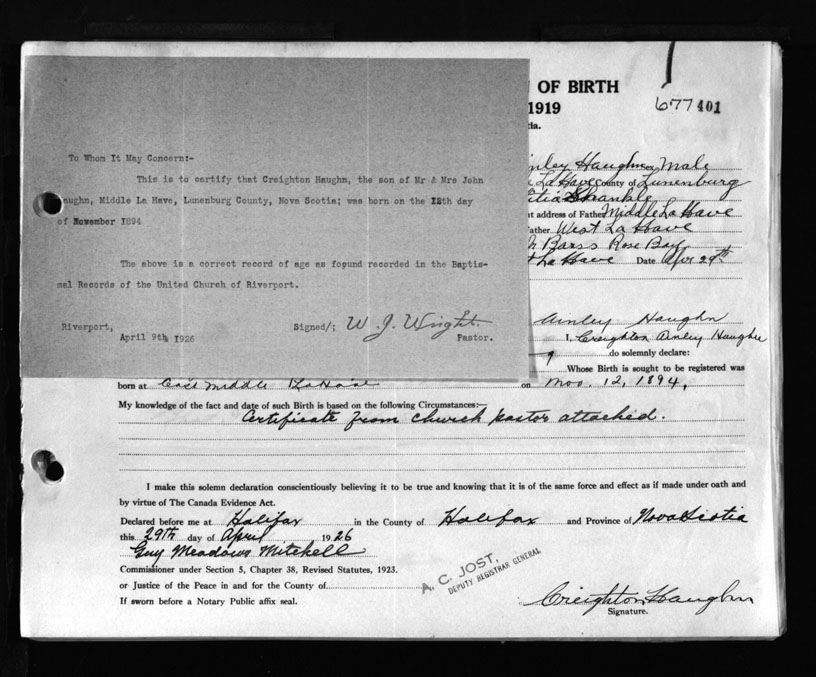 OF BIRTH
1919
677401
To Whom It May Concern:-
This is to certify that Creighton Haughn, the son of Mr & Mrs John
aughn, Middle La Have, Lunenburg County, Nova Scotia; was born on the 12th day
of November 1894
The above is a correct record of age as fo9und recorded in the Baptis-
mal Records of the United Church of Riverport.
Riverport,
April 9th 1926
Signed/; W. J. Wright.
Pastor.
Haughn Male
La Have County of Lunenburg
t address of Father Middle La Have
ather West La Have
Barss Rose Bay
La Have Date Apr 29th
Ainley Haughn
I, Creighton Ainley Haughn
do solemnly declare:
Whose Birth is sought to be registered was
born at East Middle LaHave on Nov. 12, 1894,
My knowledge of the fact and date of such Birth is based on the following Circumstances:—
Certificate from church pastor attached.
I make this solemn declaration conscientiously believing it to be true and knowing that it is of the same force and effect as if made under oath and
by virtue of The Canada Evidence Act.
Declared before me at Halifax in the County of Halifax and Province of Nova Scotia
this 29th day of April 1926
Guy Meadows Mitchell
Commissioner under Section 5, Chapter 38, Revised Statutes, 1923.
or Justice of the Peace in and for the County of
If sworn before a Notary Public affix seal.
A. C. JOST,
DEPUTY REGISTRAR GENERAL
Creighton Haughn
Signature.